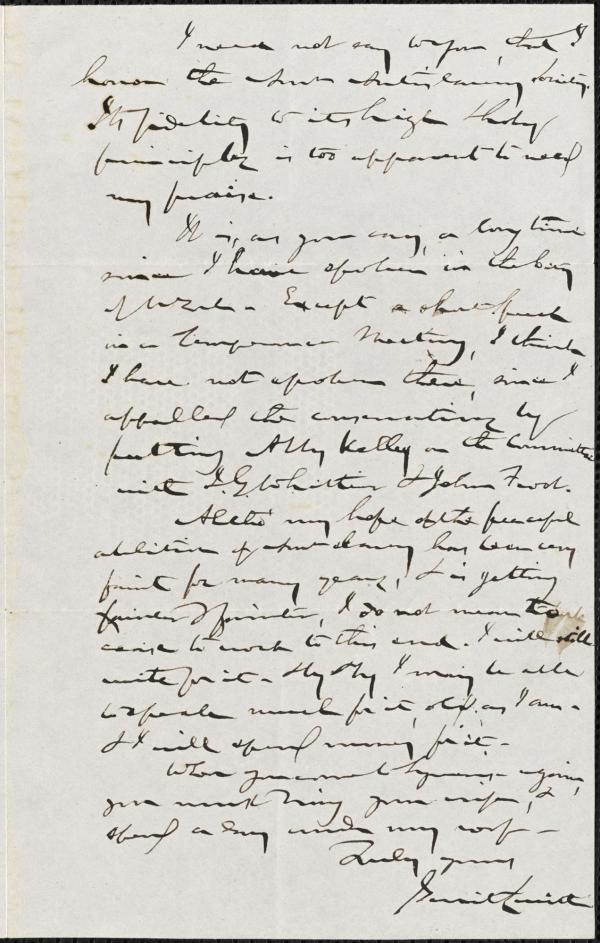 I need not say to you, that I
honor the Am. Antislavery Society.
Its fidelity to its high & holy
principles is too apparent to need
my praise.
It is, as you say, a long time
since I have spoken in the City
of N. York - Except a short speech
in a Temperance Meeting, I think
I have not spoken there, since I
appalled the conservatives by
putting Abby Kelley on the Committee
with J. G. Whittier & John Frost.
Altho' my hope of the peaceful
abolition of Am. slavery has been very
faint for many years, & is getting
fainter & fainter, I do not mean to
cease to work to this end. I will still
write for it - By & by I may be able
to speak much for it, old as I am -
& I will spend money for it -
When you come to Syracuse again,
you must bring your wife, &
spend a day under my roof -
Truly yours
Gerrit Smith